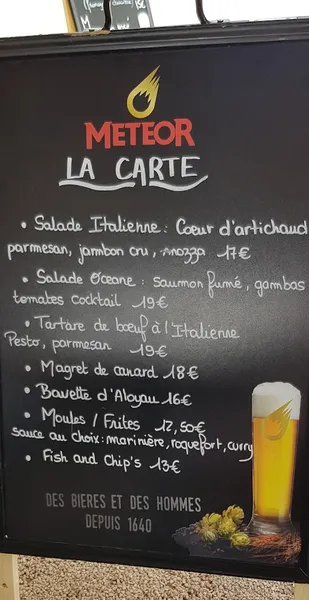 METEOR
LA CARTE
• Salade Italienne : Coeur d'artichaud
parmesan, jambon cru, mozza 17€
• Salade Oceane : saumon fumé, gambas
tomates cocktail 19€
• Tartare de bœuf à l'Italienne
Pesto, parmesan 19€
• Magret de canard 18€
• Bavette d'Aloyau 16€
• Moules / Frites 12,50€
sauce au choix: marinière, roquefort, curry
• Fish and Chip's 13€
DES BIERES ET DES HOMMES
DEPUIS 1640